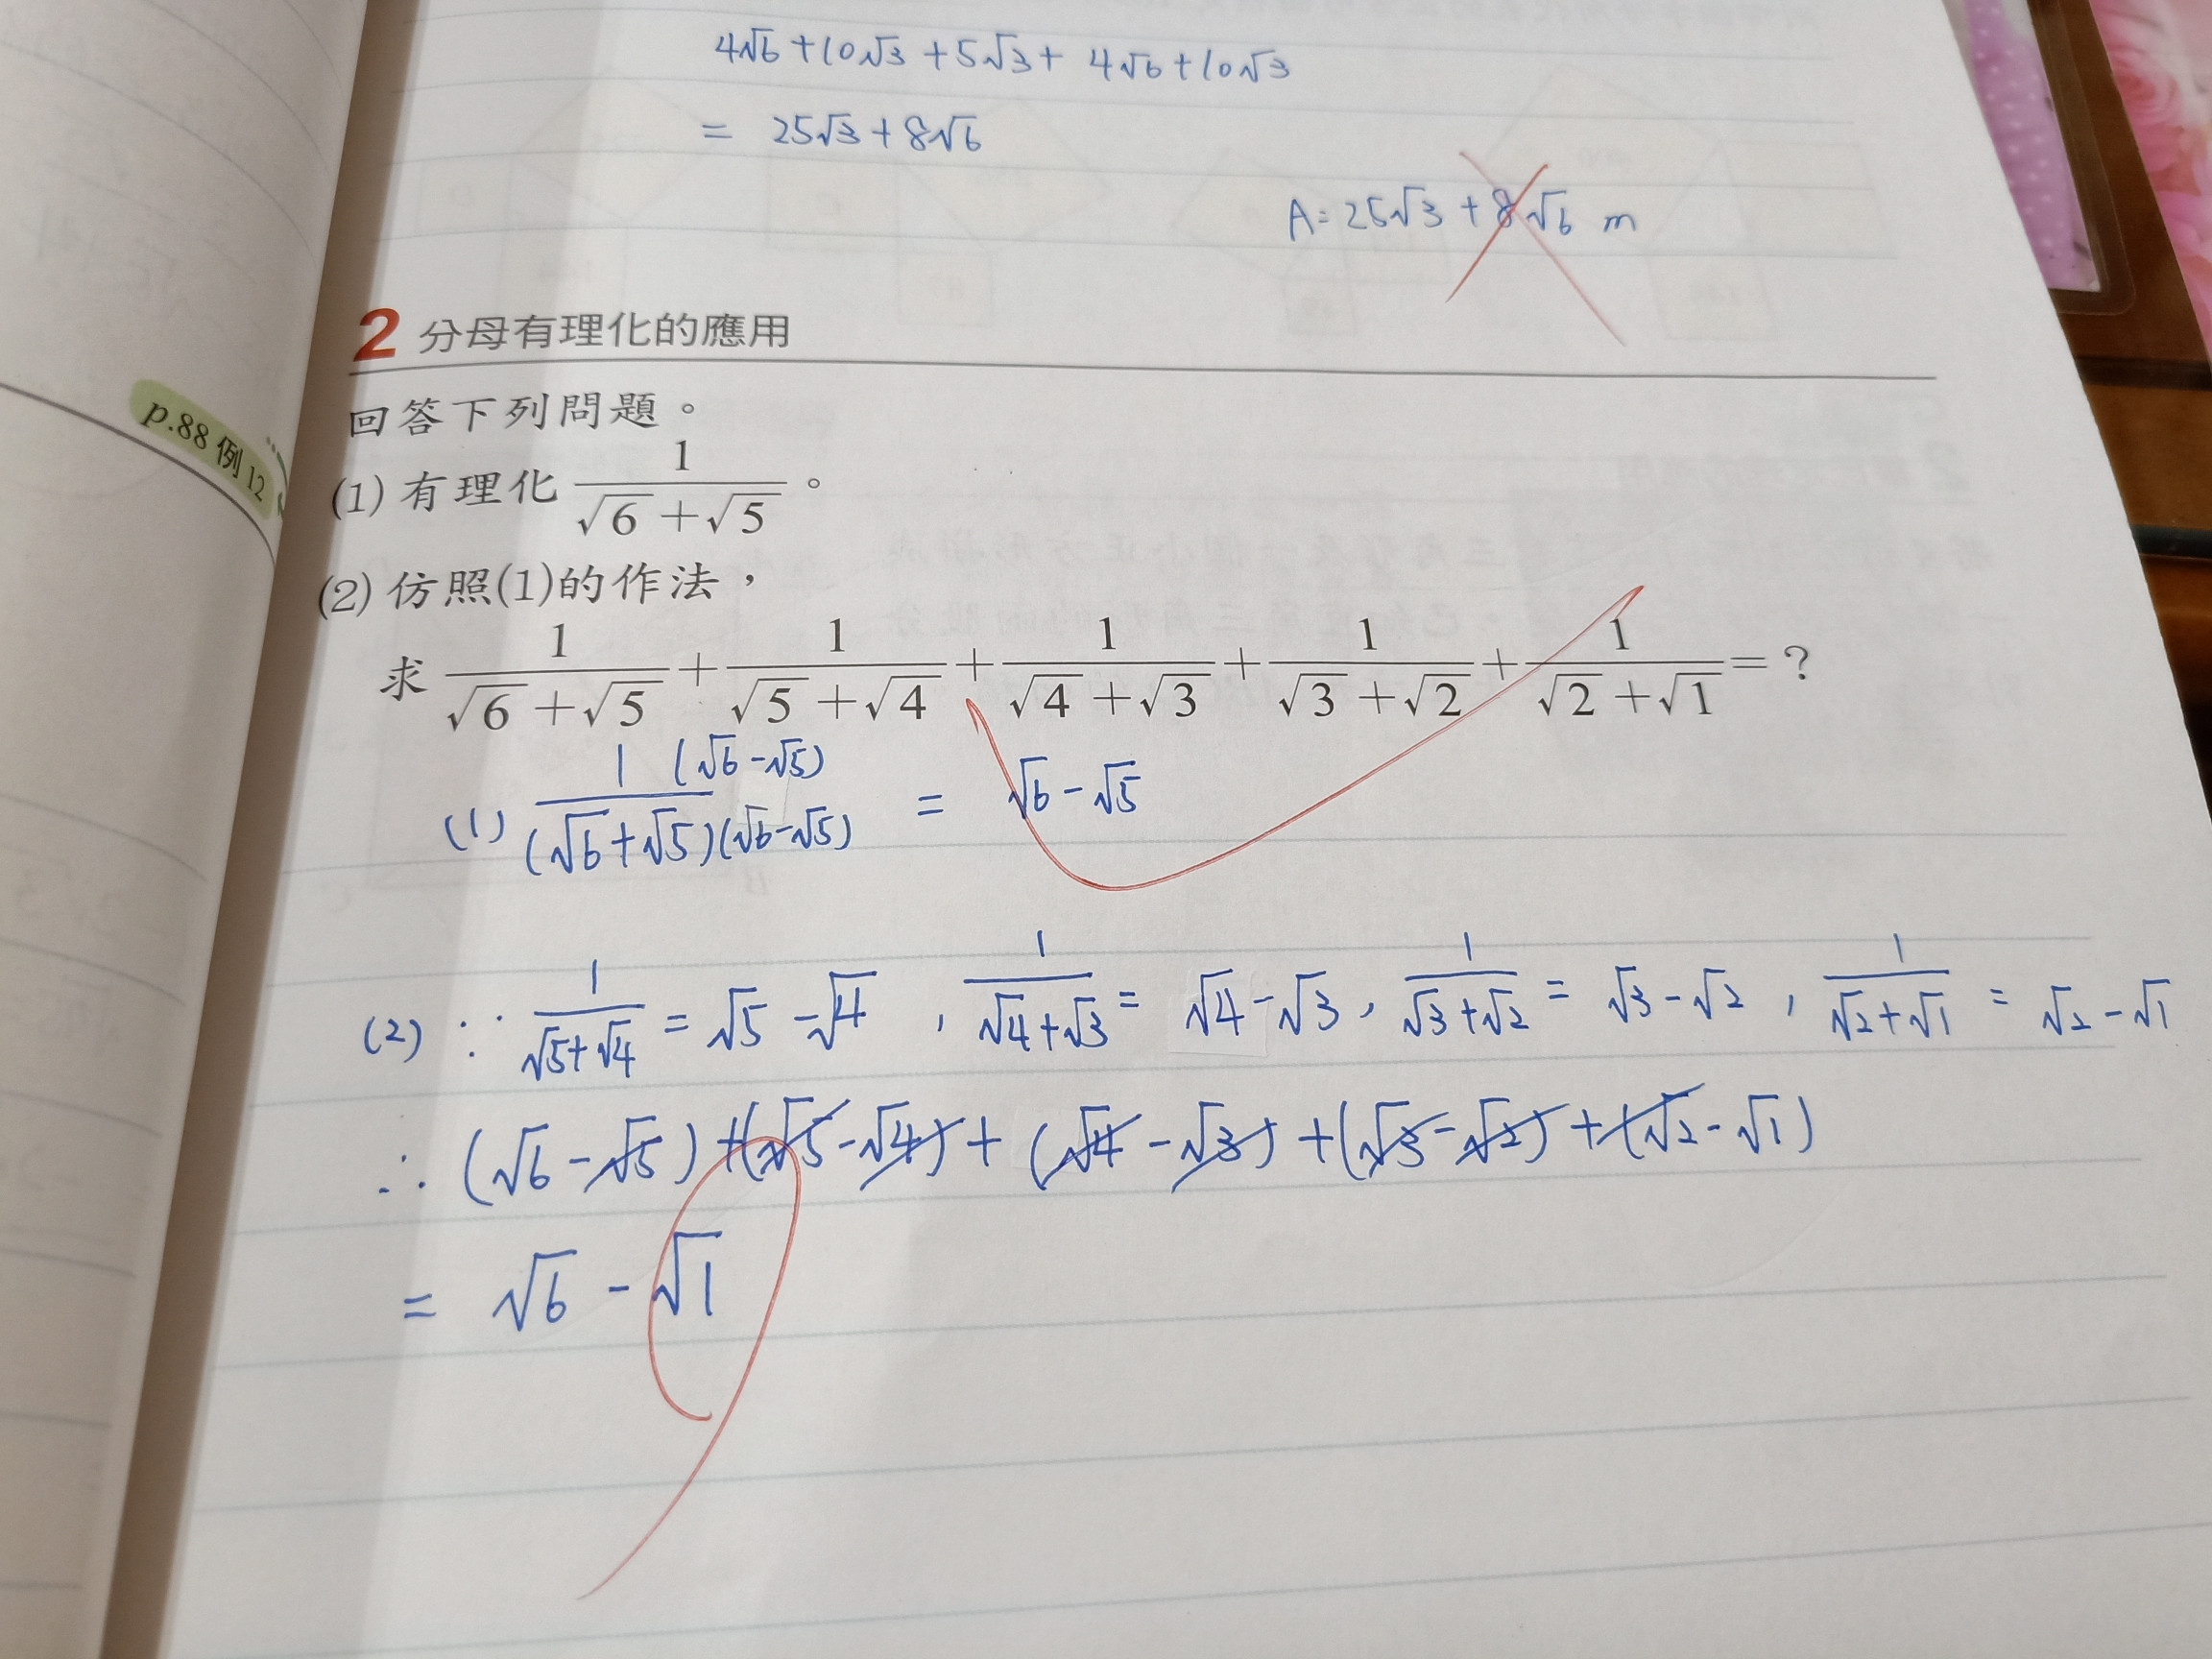 4√6+10√3+5√3+ 4√6+10√3
= 25√3+8√6
A=25√3+8√6 m
2 分母有理化的應用
p.88 例12
回答下列問題。
(1) 有理化 1/(√6+√5)。
(2) 仿照(1)的作法，
求 1/(√6+√5) + 1/(√5+√4) + 1/(√4+√3) + 1/(√3+√2) + 1/(√2+√1) = ?
(1) 1(√6-√5)/(√6+√5)(√6-√5) = √6-√5
(2) ∵ 1/(√5+√4) = √5-√4 , 1/(√4+√3) = √4-√3 , 1/(√3+√2) = √3-√2 , 1/(√2+√1) = √2-√1
∴ (√6-√5)+(√5-√4)+(√4-√3)+(√3-√2)+(√2-√1)
= √6-√1